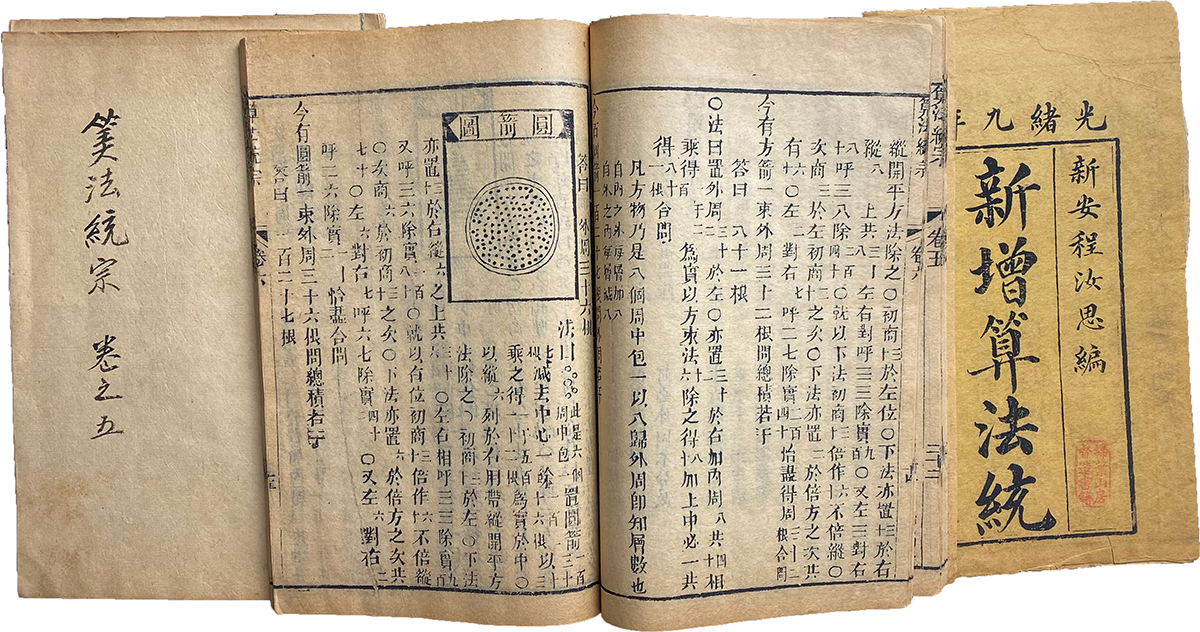 光緒九年
新安程汝思編
新增算法統
縱開平方法除之〇初商三十於左位〇下法亦置三十於右
縱八 上共三十八左右對呼三三除實九百〇又左三對右
八呼三八除實二百四十〇就以下法初商三十倍作六十不倍縱〇
次商二於左初商三十之次〇下法亦置二於倍方之次共
有七十〇左二對右七呼二七除實一百四十恰盡得周三十二根合問
今有方箭一束外周三十二根問總積若干
答曰 八十一根
〇法曰置外周三十二於左〇亦置三十二於右加內周八共四十相
乘得一千二百八十為實以方束法十六除之得八十加上中心一共
得八十一根合問
凡方物乃是八個周中包一以八歸外周即知層數也
自內之外每層加八
自外之內每層減八
卷五
答曰 外周三十六根
圓箭圖
法曰 此是六個周中包一 置圓箭一百二十
七根減去中心一餘一百二十六根以十二
乘之得一千五百一十二根為實於中〇
以縱六列於右用帶縱開平方
法除之〇初商三十於左〇下法
亦置三十於右縱六之上共三十六〇左右相呼三三除實九百
又呼三六除實一百八十〇就以右位初商三十倍作六十不倍縱
〇次商六於初商三十之次〇下法亦置六於倍方之次共
七十二〇次商六對右七呼六七除實四百二十〇又左六對右二
呼二六除實一十二恰盡合問
今有圓箭一束外周三十六根問總積若干
答曰 一百二十七根
算法統宗 卷之五